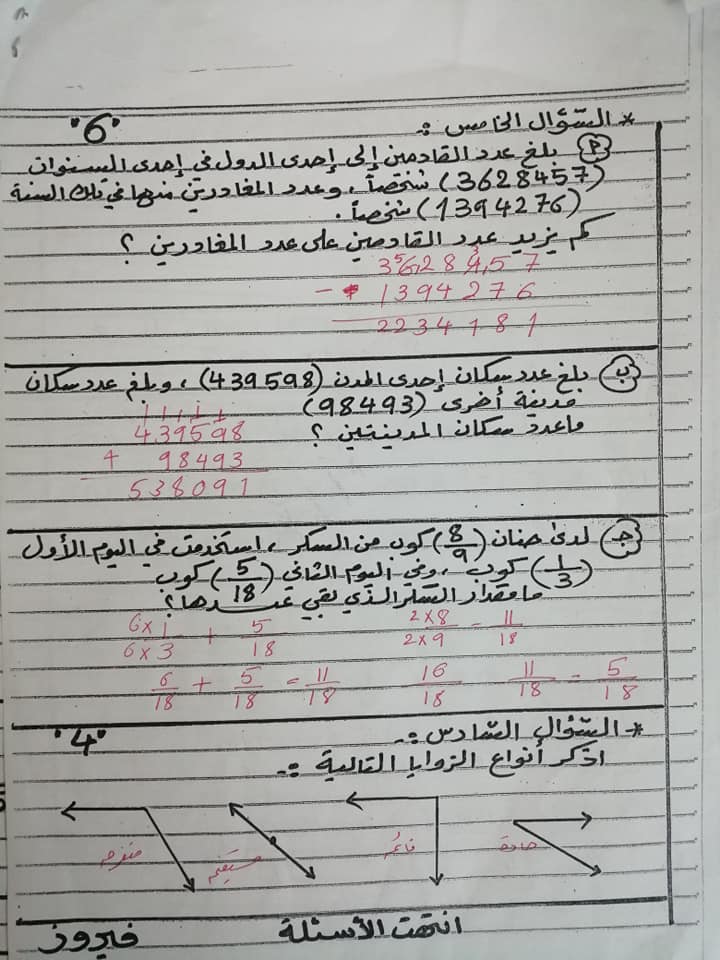 * السؤال الخامس :- "6"
أ) بلغ عدد القادمين إلى إحدى الدول في إحدى السنوات
(3628457) شخصاً، وعدد المغادرين منها في تلك السنة
(1394276) شخصاً.
كم يزيد عدد القادمين على عدد المغادرين ؟
3628457
- 1394276
2234181
ب) بلغ عدد سكان إحدى المدن (439598)، وبلغ عدد سكان
مدينة أخرى (98493)
ما عدد سكان المدينتين ؟
1 1 1 1
439598
+ 98493
538091
ج) لدى حنان (8/9) كوب من السكر، استخدمت في اليوم الأول
(1/3) كوب، وفي اليوم الثاني (5/18) كوب
ما مقدار السكر الذي بقي عندها؟
6×1/6×3 + 5/18 2×8/2×9 - 11/18
6/18 + 5/18 = 11/18 16/18 11/18 = 5/18
* السؤال السادس :- "4"
اذكر أنواع الزوايا التالية :-
حادة قائم مستقيم منفرج
انتهت الأسئلة فيروز